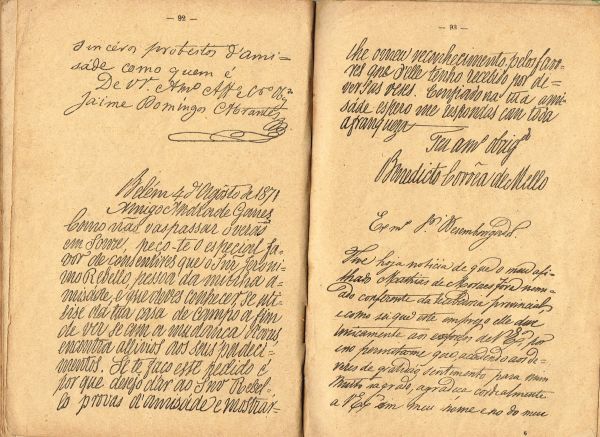 — 92 —
sinceros protestos d'ami-
sade como quem é
De VV. Amº Affº e Crº Obgº
Jaime Domingos Abrantes
Belém 4 d'Agosto de 1871
Amigo Andrade Gomes
Como não vas passar o verão
em Soure, peço-te o especial fa-
vor de consentires que o Snr Jeroni-
mo Rebello, pessoa da minha a-
misade, e que deves conhecer, se uti-
lise da tua casa de campo a fim
de ver se com a mudança d'ares,
encontra allivios aos seus padeci-
mentos. Se te faço este pedido é
por que desejo dar ao Snr Rebel-
lo provas d'amisade e mostrar-
— 93 —
lhe o meu reconhecimento, pelos favo-
res que d'elle tenho recebido por di-
versas vezes. Confiado na tua ami-
sade espero me respondas com toda
a franqueza
Teu amº obrigº
Benedicto Corrêa de Mello
Exmº Sr
Tive hoje noticia de que o meu afi-
lhado Mathias de Moraes fora nome-
ado da provincial,
e como sei que este emprego elle deve
unicamente aos exforços de V Exª, por
em permitta-me que, accedendo aos de-
veres de gratidão, sentimento para mim
muito sagrado, agradeça cordealmente
a V Exª em meu nome e no do meu
6